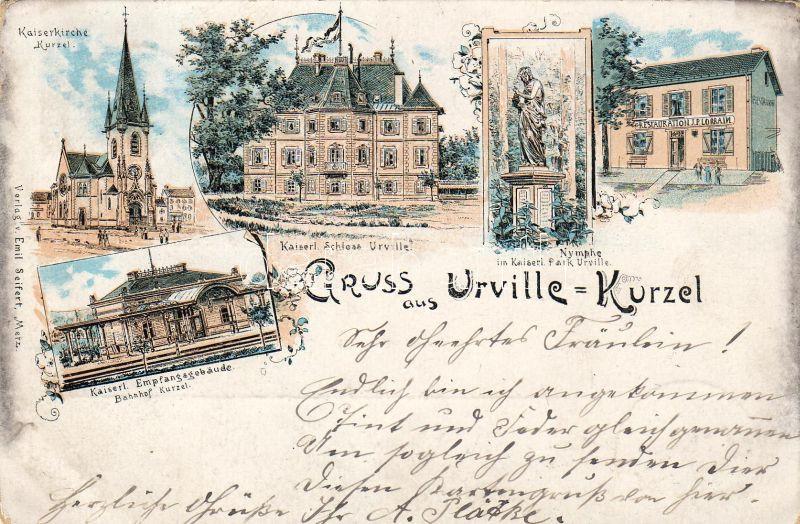 Kaiserkirche
Kurzel.
RESTAURATION J.P. LORRAIN
Kaiserl. Schloss Urville.
Nymphe
im Kaiserl. Park Urville.
Verlag v. Emil Seifert, Metz.
Kaiserl. Empfangsgebäude.
Bahnhof Kurzel.
GRUSS aus Urville = Kurzel
Sehr geehrtes Fräulein!
Endlich bin ich angekommen
Tint und Feder gleich genommen
Um sogleich zu senden Dier
Diesen Kartengruß von hier.
Herzliche Grüße Ihr A.